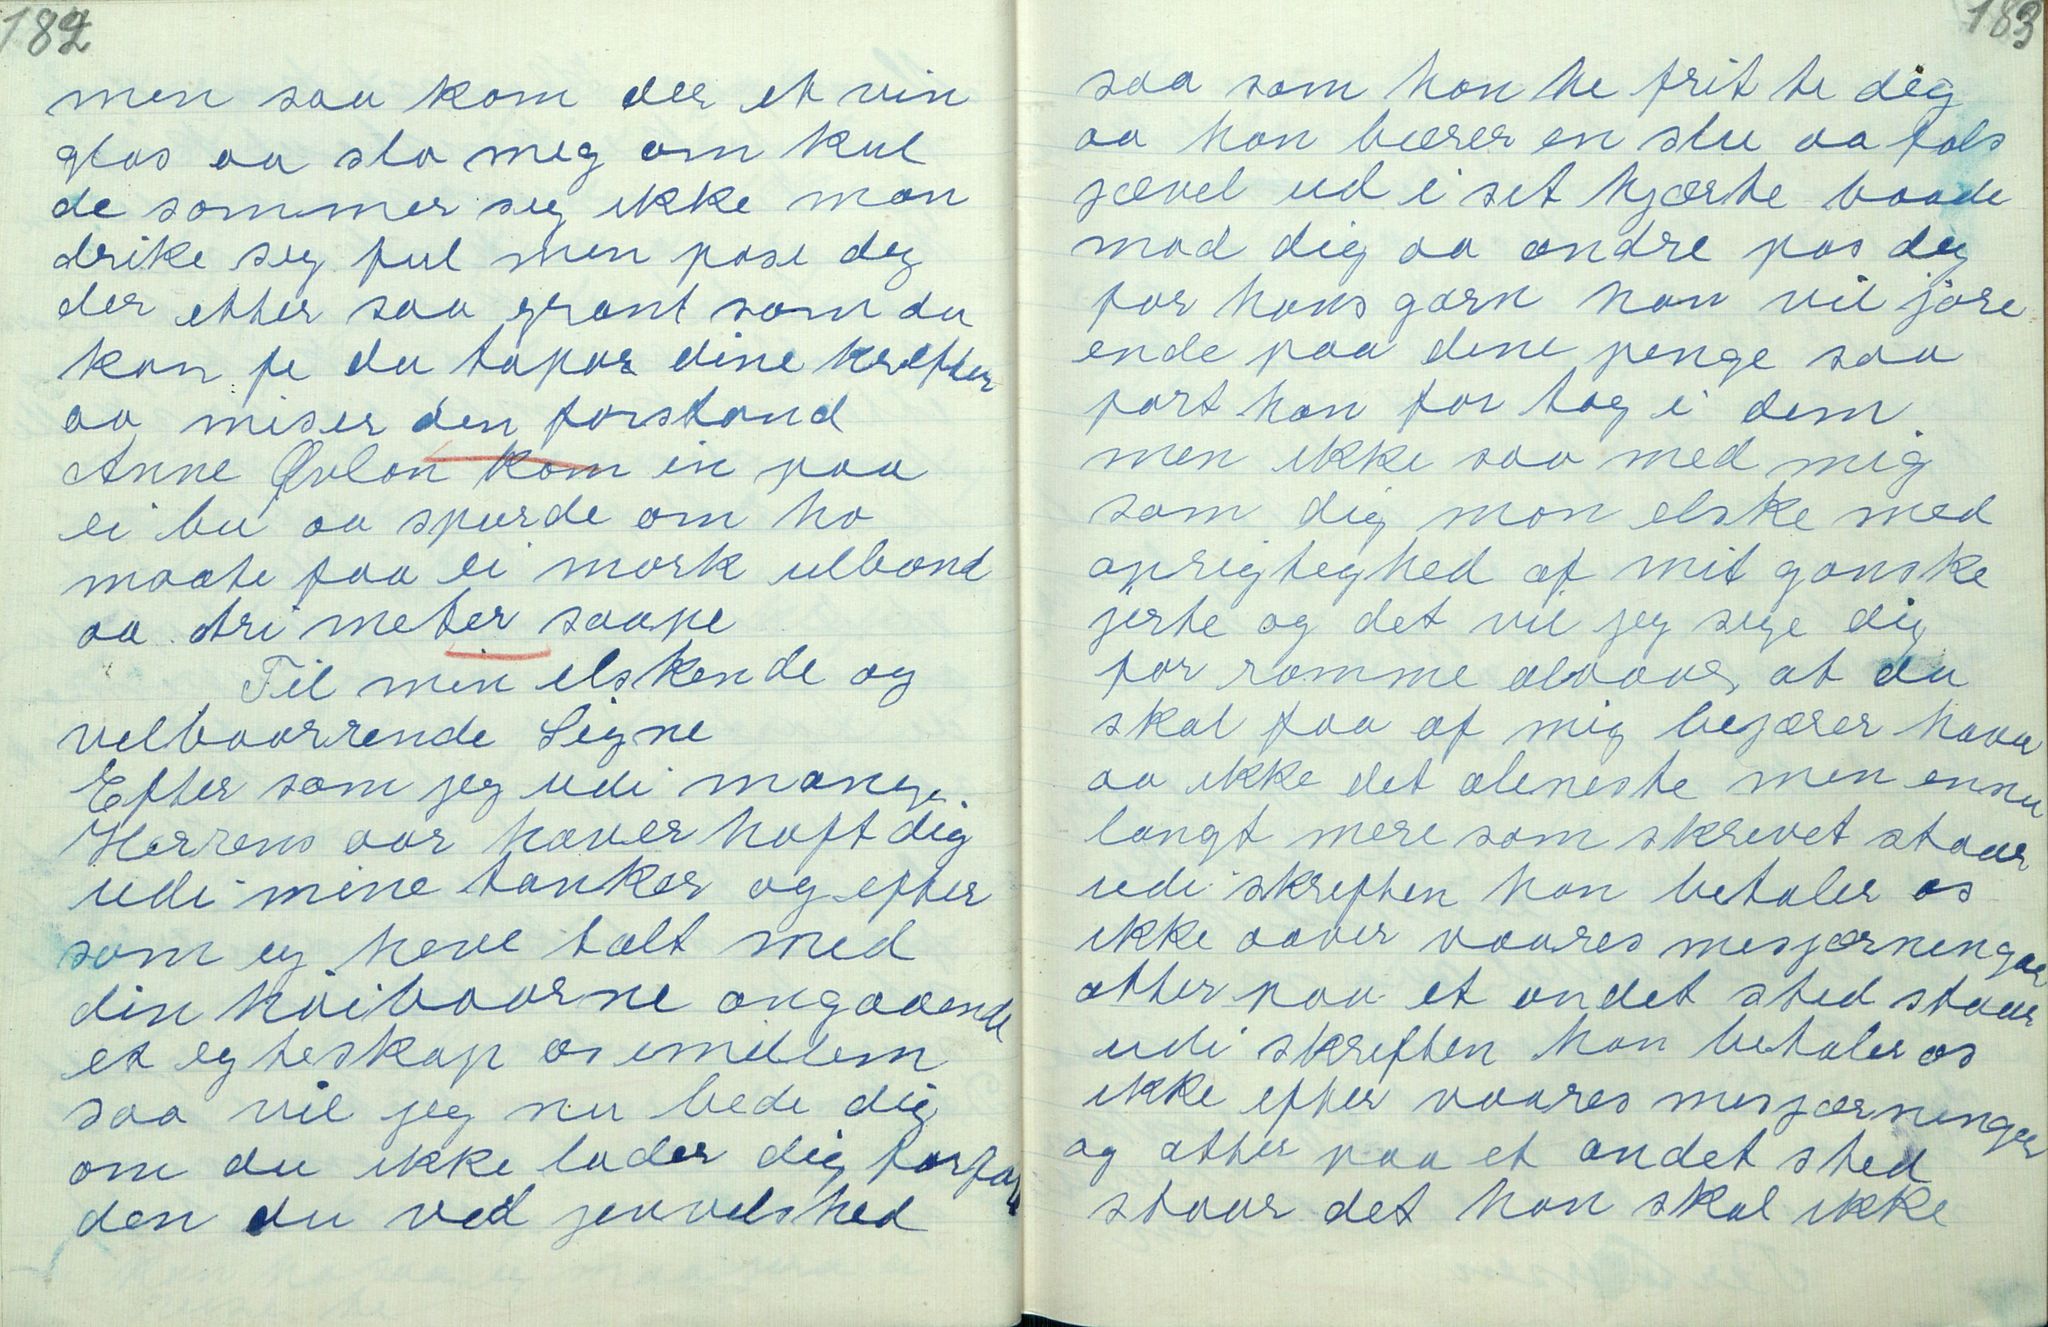 182
men saa kom der et vin
glas aa slo meg om kul
de sommer seg ikke man
drike seg ful men pase deg
der etter saa grant som du
kan fe du tapar dine krefter
aa miser den forstand
Anne Øvlan kom in paa
ei bu aa spurde om ho
maate faa ei mork ulband
aa tri meter saape
Til min elskende og
velbaarrende Signe
Efter som jeg udi mange
Herrens aar haver haft dig
udi mine tanker og efter
som eg heve talt med
din høibaarne angaaende
et egteskap os imillem
saa vil jeg nu bede dig
om du ikke lader dig
den du ved jevvelshed
183
saa som han he frit te dig
aa han bærer en slu aa fals
jævel ud i sit hjærte baade
mod dig aa andre pas deg
for hans garn han vil jøre
ende paa dine penge saa
fort han for tag i dem
men ikke saa med mig
som dig mon elske med
oprigteghed af mit ganske
jerte og det vil jeg sige dig
for ramme alvaar, at du
skal faa af mig bejærer have
aa ikke det aleneste men ennu
langt mere som skrevet staar
udi skreften han betaler os
ikke aaver vaares mesjærningar
atter paa et andet sted staar
udi skreften han betaler os
ikke efter vaares mesjærninger
og atter paa et andet sted
staar det han skal ikke